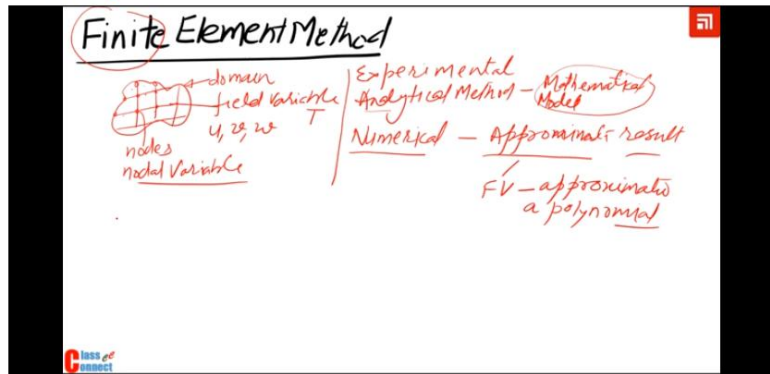 Finite Element Method
domain
field variable
u, v, w T
nodes
nodal variable
Experimental
Analytical Method - Mathematical
Model
Numerical - Approximate result
FV - approximatio
a polynomial
Class
Connect